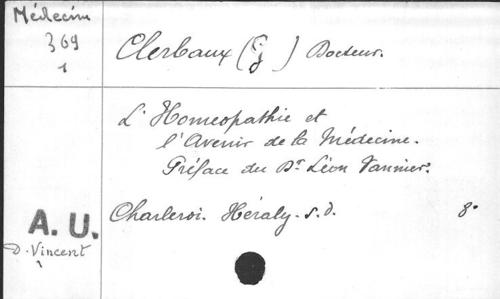 Médecine
369
1
Clerbaux (G) Docteur.
L'Homeopathie et
l'Avenir de la Médecine.
Préface du Dr Léon Vannier.
Charleroi. Héraly. s. d. 8°
A. U.
D. Vincent